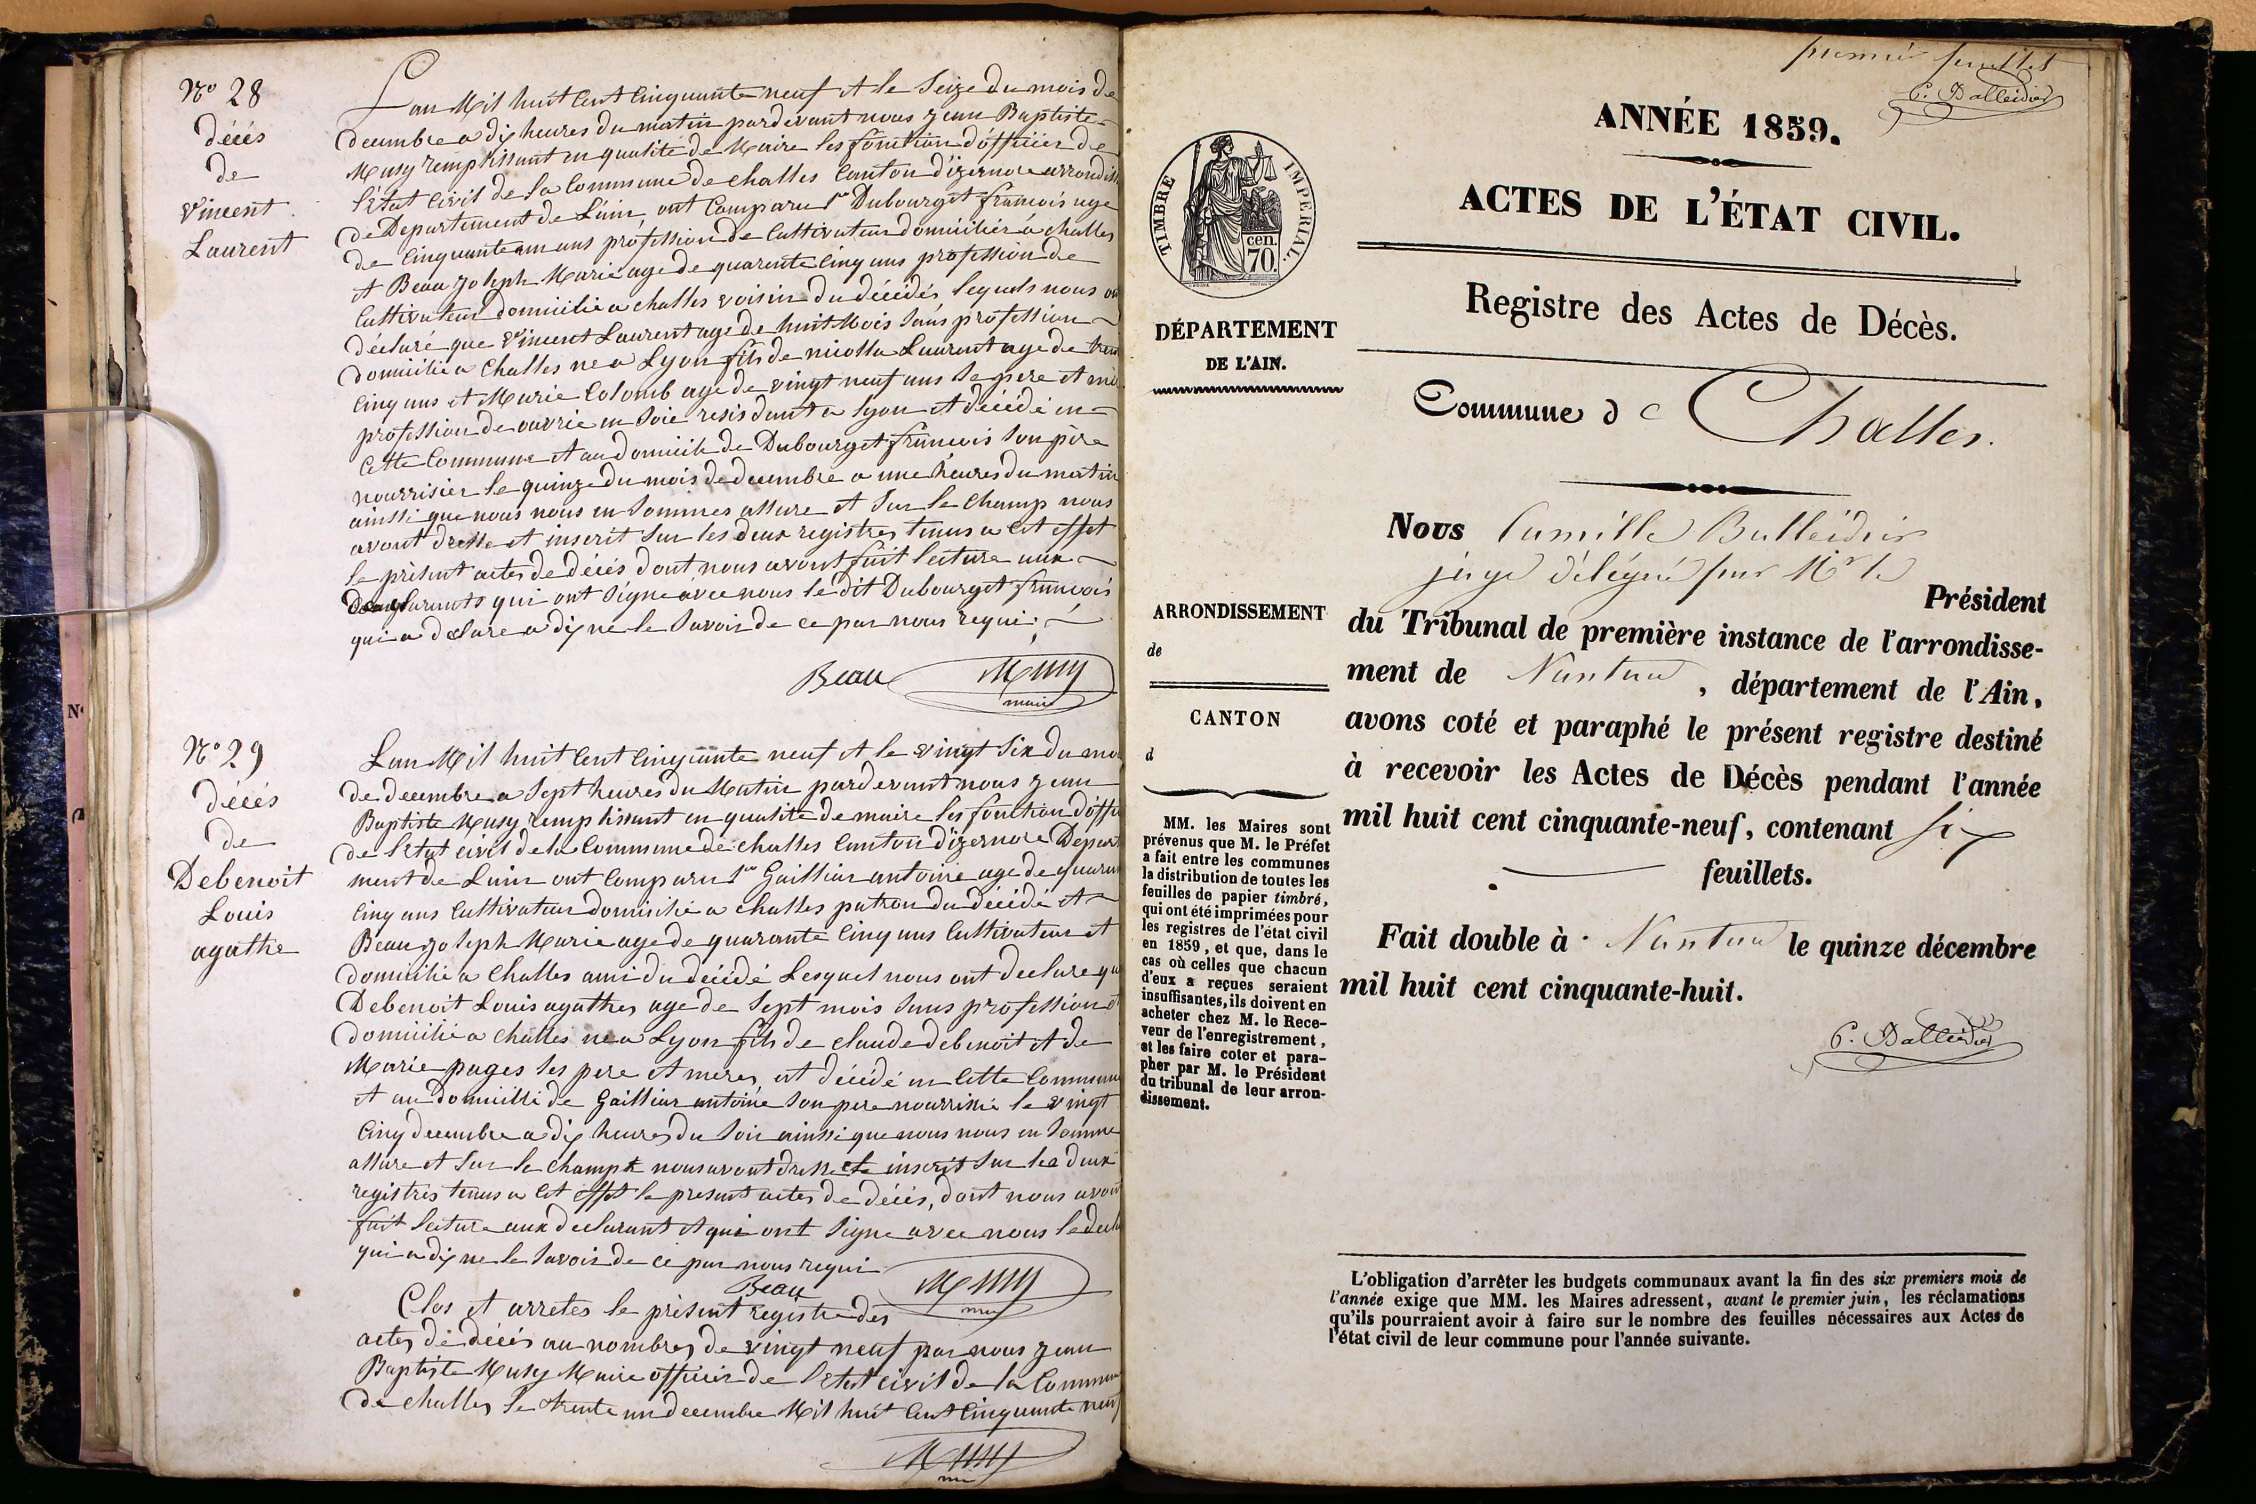 No 28
décés
de
Vincent
Laurent
Lan Mil huit Cent Cinquante neuf et le Seize du mois de
decembre a dix heures du matin pardevant nous jean Baptiste
Musy remplissant en qualité de Maire les fonction d'officier de
l'Etat Civil de la Commune de challes Canton d'izernore
de Departiment de L'ain, ont Comparu Sr Dubourget francois age
de Cinquante un ans proféssion de Cultivateur domicilier a challes
et Beau joseph Marie age de quarente Cinq ans profession de
Cultivateur domicilié a challes voisin du décédés, lequels nous
déclaré que Vincent Laurent age de huit Mois Sans profession
domicilié a Challes ne a Lyon fils de nicolla Laurent age de
Cinq ans et Marie Colomb age de vingt neuf ans Se pere et
profession de ouvrie en Soie residant a Lyon et décédé en
Cette Commune et au domicile de Dubourget francois Son père
nourrisier le quinze du mois de decembre a une heures du matin
ainssi que nous nous en Sommes assure et Sur le Champ nous
avont dresse et inscrit Sur les deux registres tenus a Cet effet
le présent actes de décés dont nous avont fait lecture aux
qui ont Signé avec nous le dit Dubourget francois
qui a declare a dix ne le Savoir de ce par nous requi
Beau Musy
maire
No 29
décés
de
Debenoit
Louis
agathe
Lan Mil huit Cent Cinquante neuf et le vingt Six du
de decembre a Sept heures du Matin pardevant nous jean
Baptiste Musy remplissant en qualité de maire les fonction
de l'Etat civil de la Commune de challes Canton d'izernore
ment de Lain ont Comparu Sr Gaillian antoine age de
Cinq ans Cultivateur domicilié a challes patron du décédé et
Beau joseph Marie age de quarante Cinq ans Cultivateur et
domicilié a Challes ami du décédé Lesquel nous ont declare
Debenoit Louis agathes age de Sept mois Sans profession
domicilié a Challes ne a Lyon fils de claude debenoit et de
Marie pages Ses pere et meres, et décédé en Cette Commune
et au domicilli de Gaillian antoine Son pere nourrissie le vingt
Cinq decembre a dix heures du Soir ainssi que nous nous en Somme
assure et Sur le Champ nous avont dresse et inscrit Sur les deux
registres tenus a Cet effet le present actes de décés, dont nous avont
fait lecture aux declarant et qui ont Signe avec nous
qui a dix ne le Savoir de ce par nous requi
Beau Musy
Clos et arretes le présent registre des
actes de décés au nombres de vingt neuf par nous jean
Baptiste Musy Maire officier de l'Etat civil de la Commune
de challes le trente un decembre Mil huit Cent Cinquante neuf
Musy
premier feuillet
C. Balleidier
ANNÉE 1859.
ACTES DE L'ÉTAT CIVIL.
TIMBRE IMPÉRIAL.
cen.
70.
Registre des Actes de Décès.
DÉPARTEMENT
DE L'AIN.
Commune de Challes.
Nous Camille Balleidier
juge délégué par Mr le
Président
du Tribunal de première instance de l'arrondisse-
ment de Nantua, département de l'Ain,
avons coté et paraphé le présent registre destiné
à recevoir les Actes de Décès pendant l'année
mil huit cent cinquante-neuf, contenant six
feuillets.
Fait double à Nantua le quinze décembre
mil huit cent cinquante-huit.
C. Balleidier
ARRONDISSEMENT
de
CANTON
d
MM. les Maires sont
prévenus que M. le Préfet
a fait entre les communes
la distribution de toutes les
feuilles de papier timbré,
qui ont été imprimées pour
les registres de l'état civil
en 1859, et que, dans le
cas où celles que chacun
d'eux a reçues seraient
insuffisantes, ils doivent en
acheter chez M. le Rece-
veur de l'enregistrement,
et les faire coter et para-
pher par M. le Président
du tribunal de leur arron-
dissement.
L'obligation d'arrêter les budgets communaux avant la fin des six premiers mois de
l'année exige que MM. les Maires adressent, avant le premier juin, les réclamations
qu'ils pourraient avoir à faire sur le nombre des feuilles nécessaires aux Actes de
l'état civil de leur commune pour l'année suivante.